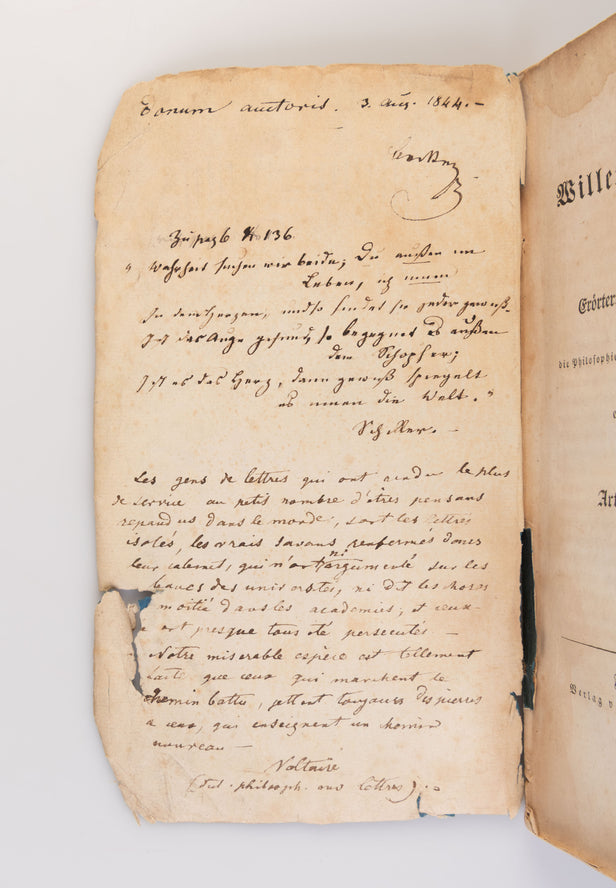 Donum auctoris. 3. Aug. 1844. –
Zu pag 136
„Wahrheit suchen wir beide; Du außen im
Leben, ich innen
In dem Herzen, und so findet sie jeder gewiß.
Ist das Auge gesund, so begegnet es außen
dem Schöpfer;
Ist es das Herz, dann gewiß spiegelt
es innen die Welt."
Schiller. –
Les gens de lettres qui ont rendu le plus
de service au petit nombre d'êtres pensans
repandus dans le monde, sont les lettrés
isolés, les vrais savans renfermés dans
leur cabinet, qui n'ont ni argumenté sur les
bancs des universités, ni dit les choses
à moitié dans les academies; et ceux-
ont presque tous été persecutés –
Notre miserable espèce est tellement
faite que ceux qui marchent le
chemin battu, jettent toujours des pierres
a ceux, qui enseignent un chemin
nouveau –
Voltaire
(dict. philosoph. aux lettres).
Wille
Erörter
die Philosophie
Art
Verlag v